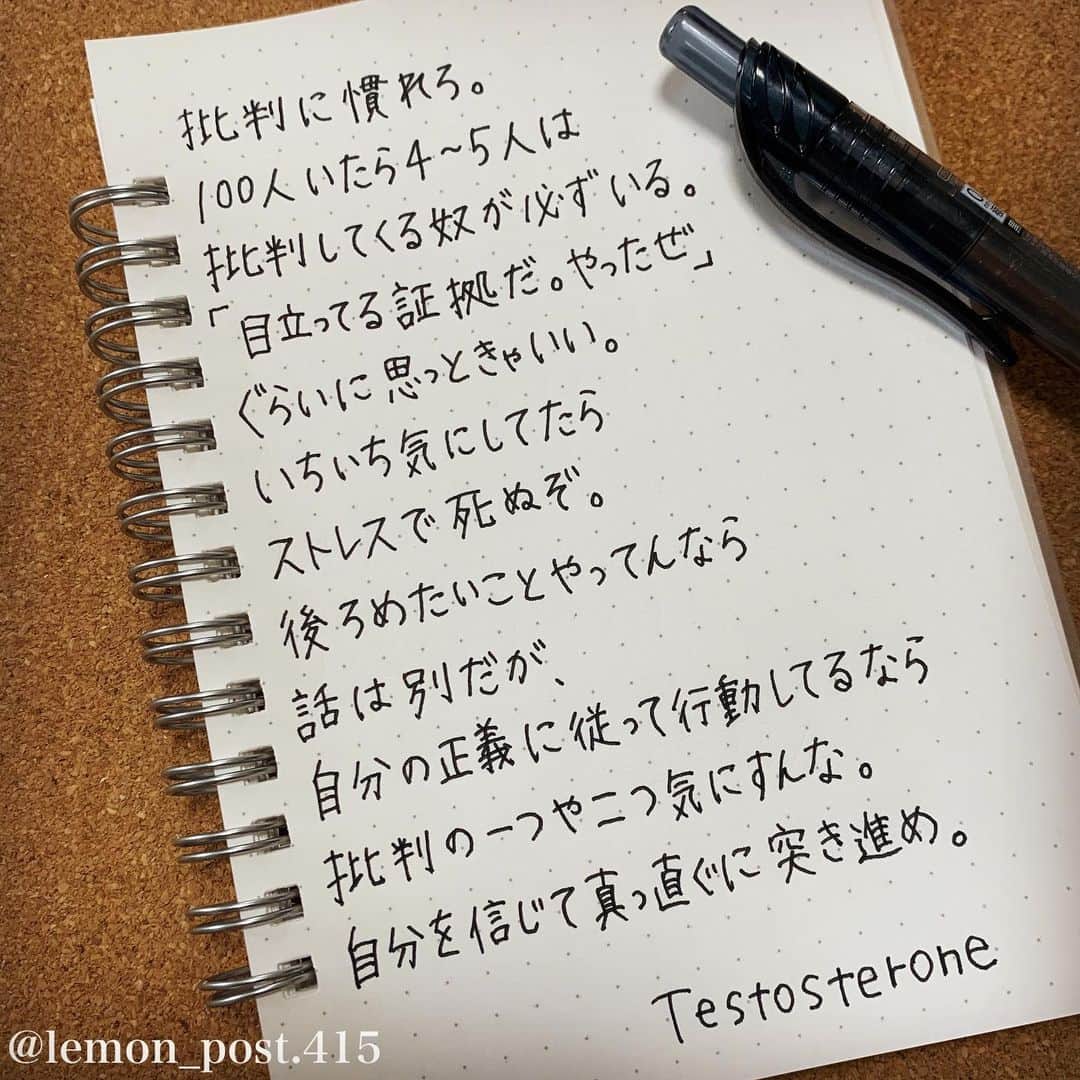 批判に慣れろ。
100人いたら4~5人は
批判してくる奴が必ずいる。
「目立ってる証拠だ。やったぜ」
ぐらいに思っときゃいい。
いちいち気にしてたら
ストレスで死ぬぞ。
後ろめたいことやってんなら
話は別だが、
自分の正義に従って行動してるなら
批判の一つや二つ気にすんな。
自分を信じて真っ直ぐに突き進め。
Testosterone
@lemon_post.415